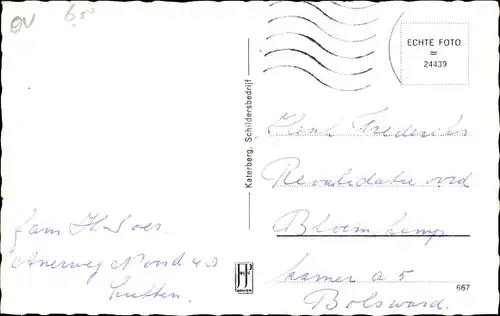 OV 6,50
ECHTE FOTO
=
24439
Katerberg, Schildersbedrijf
Henk Frederiks
Revalidatie oord
Bloemkamp
kamer a 5
Bolsward.
fam H
Anerweg Noord
Lutten.
JSP
667